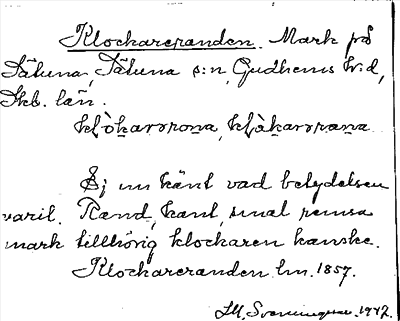 Klockareranden. Mark på
Sätuna, Sätuna s:n, Gudhems h:d,
Skb. län.
klòkarørɷna, klåkarørana
Ej nu känt vad betydelsen
varit. Rand, kant, smal remsa
mark tillhörig klockaren kanske.
Klockareranden lm. 1857.
1942.